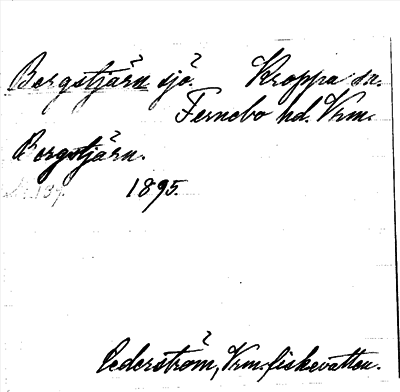 Bergstjärn sjö. Kroppa sn.
Fernebo hd. Vrm.
Bergstjärn.
S. 137. 1895.
Cederström, Vrm. fiskevatten.